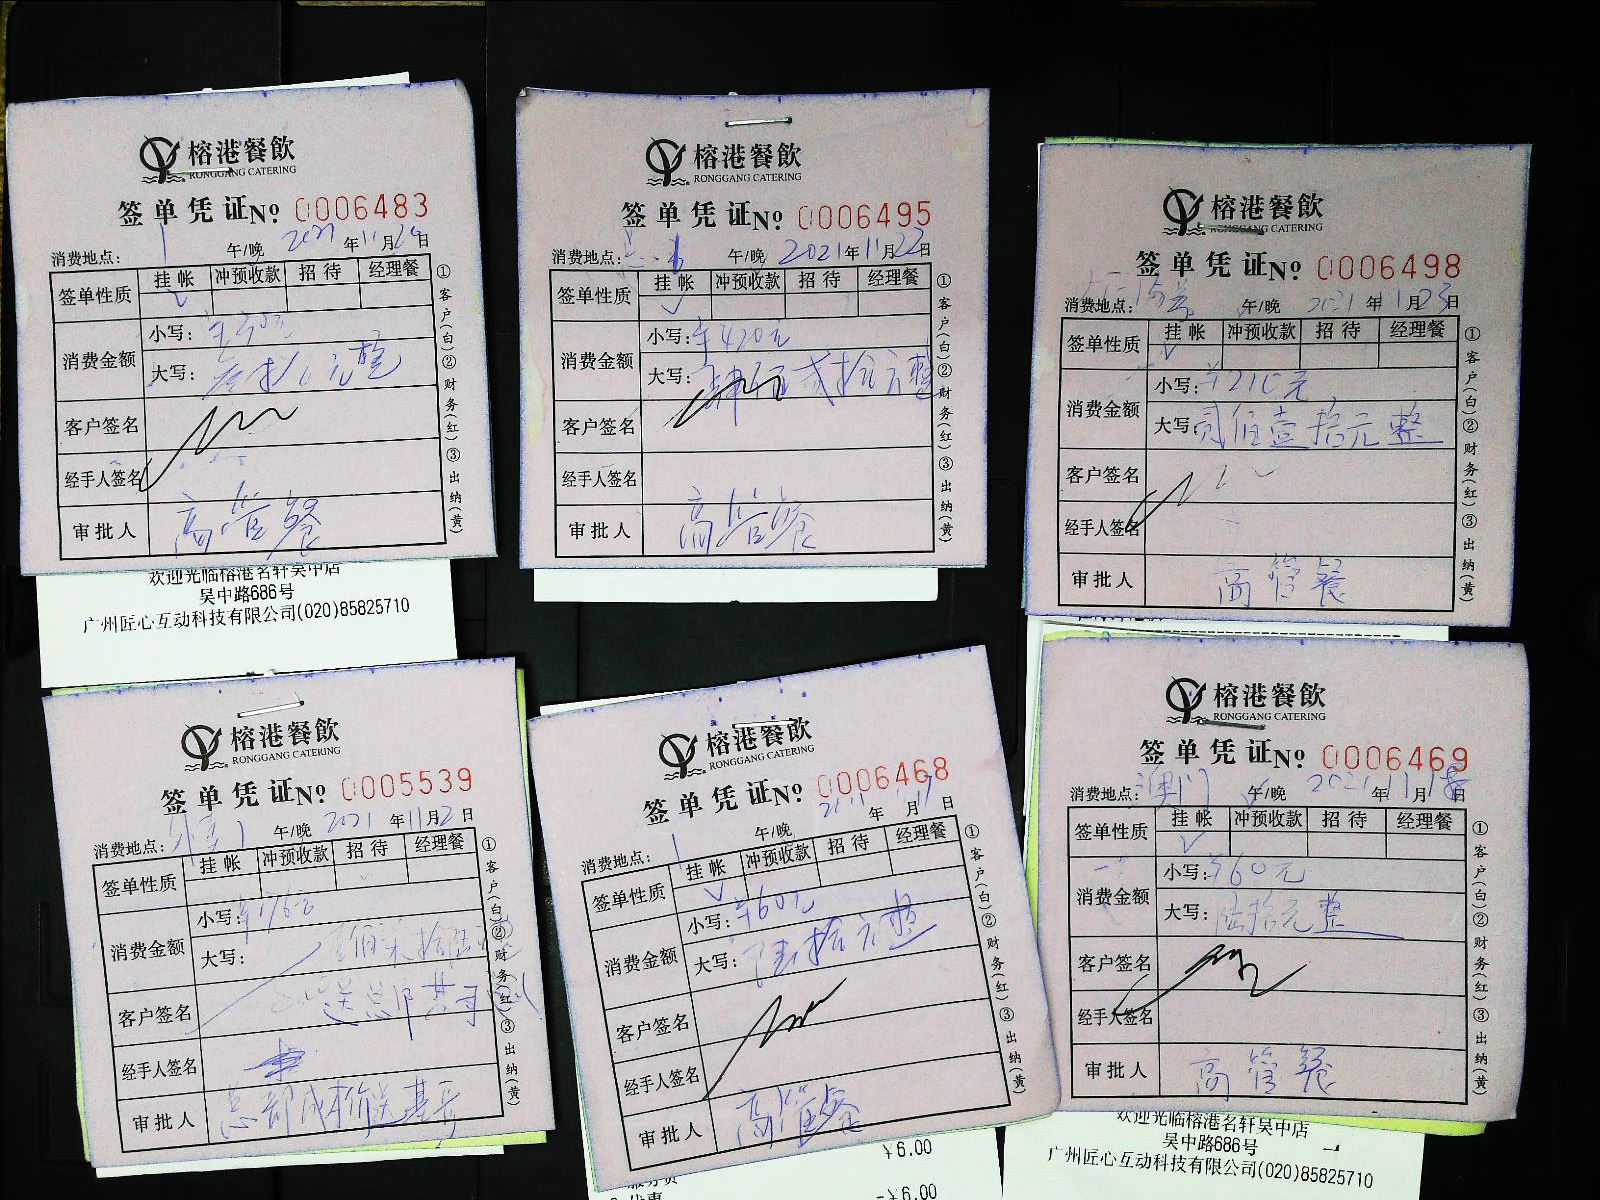 榕港餐飲
RONGGANG CATERING
签单凭证№ 0006483
消费地点： 午/晚 2021年11月24日
签单性质 挂帐 冲预收款 招待 经理餐
消费金额 小写：
大写： 元整
客户签名
经手人签名
审批人 高管餐
①客户(白)②财务(红)③出纳(黄)
欢迎光临榕港名轩吴中店
吴中路686号
广州匠心互动科技有限公司(020)85825710
榕港餐飲
RONGGANG CATERING
签单凭证№ 0006495
消费地点： 午/晚 2021年11月22日
签单性质 挂帐 冲预收款 招待 经理餐
消费金额 小写：¥420元
大写：肆佰贰拾元整
客户签名
经手人签名
审批人 高管餐
①客户(白)②财务(红)③出纳(黄)
榕港餐飲
RONGGANG CATERING
签单凭证№ 0006498
消费地点： 午/晚 2021年11月23日
签单性质 挂帐 冲预收款 招待 经理餐
消费金额 小写：¥210元
大写：贰佰壹拾元整
客户签名
经手人签名
审批人 高管餐
①客户(白)②财务(红)③出纳(黄)
榕港餐飲
RONGGANG CATERING
签单凭证№ 0005539
消费地点： 午/晚 2021年11月2日
签单性质 挂帐 冲预收款 招待 经理餐
消费金额 小写：¥176元
大写：壹佰柒拾陆元整
客户签名 送总部
经手人签名
审批人 总部成本价送
①客户(白)②财务(红)③出纳(黄)
榕港餐飲
RONGGANG CATERING
签单凭证№ 0006468
消费地点： 午/晚 2021年11月19日
签单性质 挂帐 冲预收款 招待 经理餐
消费金额 小写：¥60元
大写：陆拾元整
客户签名
经手人签名
审批人 高管餐
①客户(白)②财务(红)③出纳(黄)
¥6.00
服务费
-¥6.00
榕港餐飲
RONGGANG CATERING
签单凭证№ 0006469
消费地点：澳门 午/晚 2021年11月18日
签单性质 挂帐 冲预收款 招待 经理餐
消费金额 小写：¥60元
大写：陆拾元整
客户签名
经手人签名
审批人 高管餐
①客户(白)②财务(红)③出纳(黄)
欢迎光临榕港名轩吴中店
吴中路686号
广州匠心互动科技有限公司(020)85825710